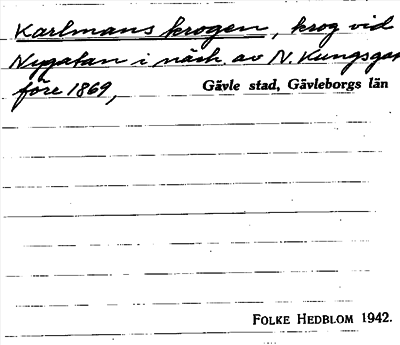 Karlmans krogen, krog vid
Nygatan i närh. av N. Kungsgat
före 1869,
Gävle stad, Gävleborgs län
FOLKE HEDBLOM 1942.